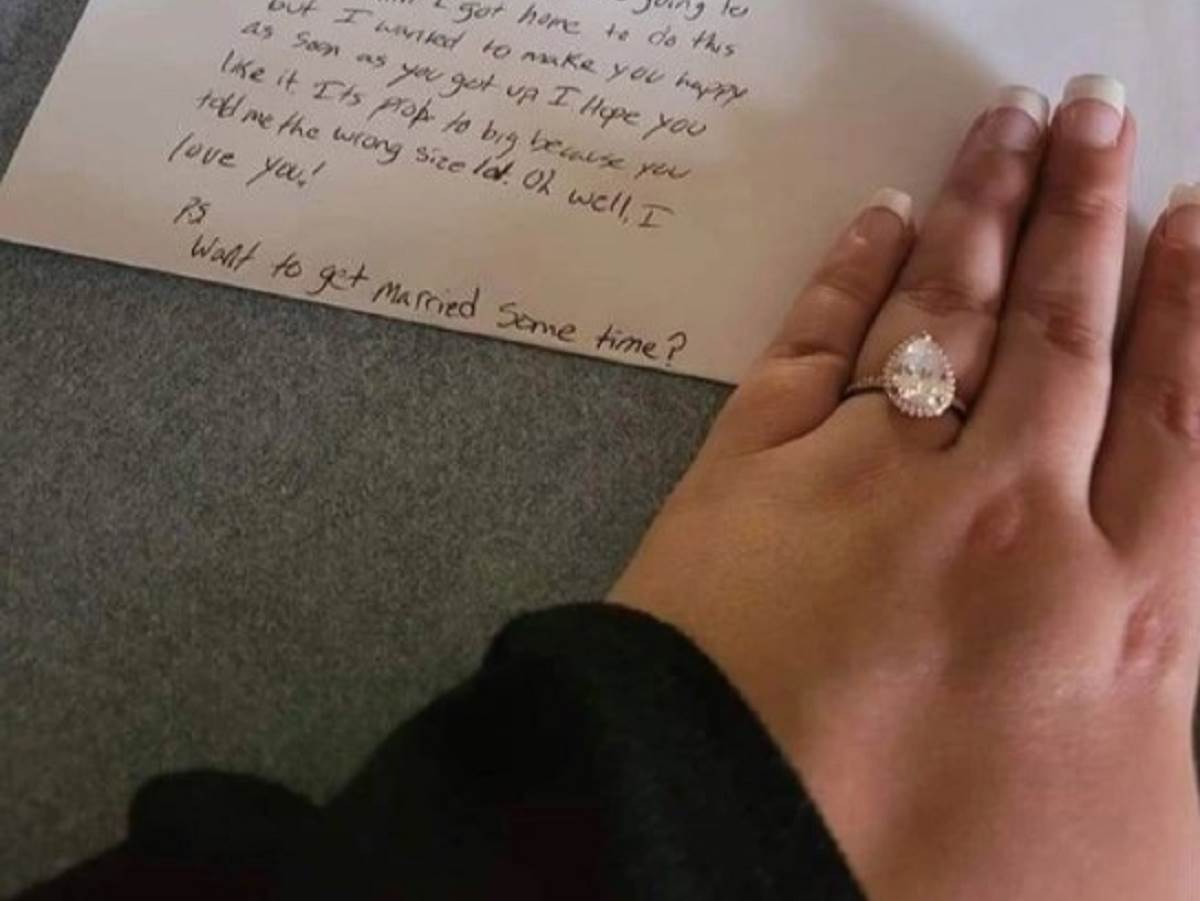 going to
I got home to do this
but I wanted to make you happy
as soon as you got up I Hope you
like it. Its prob to big because you
told me the wrong size lol. Oh well, I
love you!
PS
Want to get married some time?